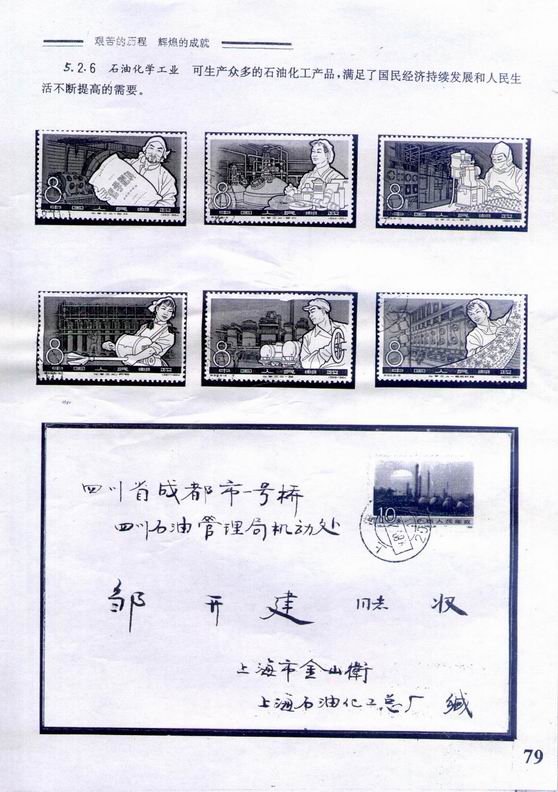 艰苦的历程 辉煌的成就
5.2.6 石油化学工业 可生产众多的石油化工产品,满足了国民经济持续发展和人民生
活不断提高的需要。
8
中国人民邮政
8
中国人民邮政
8
中国人民邮政
8
中国人民邮政
8
中国人民邮政
8
中国人民邮政
10
中国人民邮政
四川省成都市一号桥
四川石油管理局机动处
邹开建 同志 收
上海市金山衛
上海石油化工总厂 缄
79